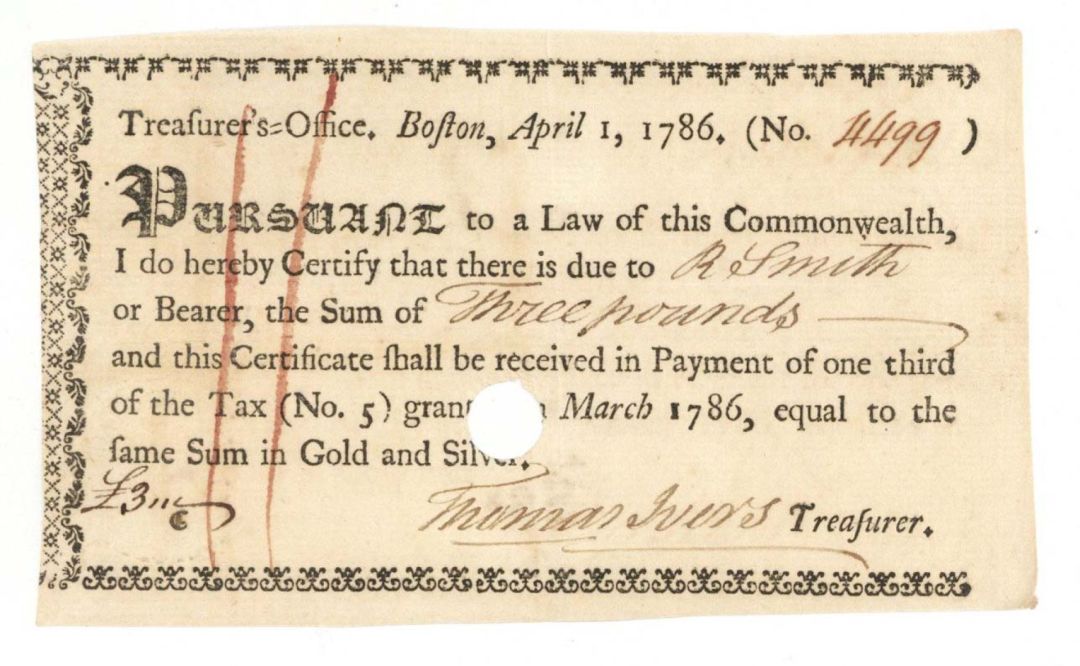 Treaſurer's=Office. Boſton, April 1, 1786. (No. 4499)
PURSUANT to a Law of this Commonwealth,
I do hereby Certify that there is due to R Smith
or Bearer, the Sum of Three pounds
and this Certificate ſhall be received in Payment of one third
of the Tax (No. 5) grant March 1786, equal to the
ſame Sum in Gold and Silver.
£3
Thomas Ivers Treaſurer.